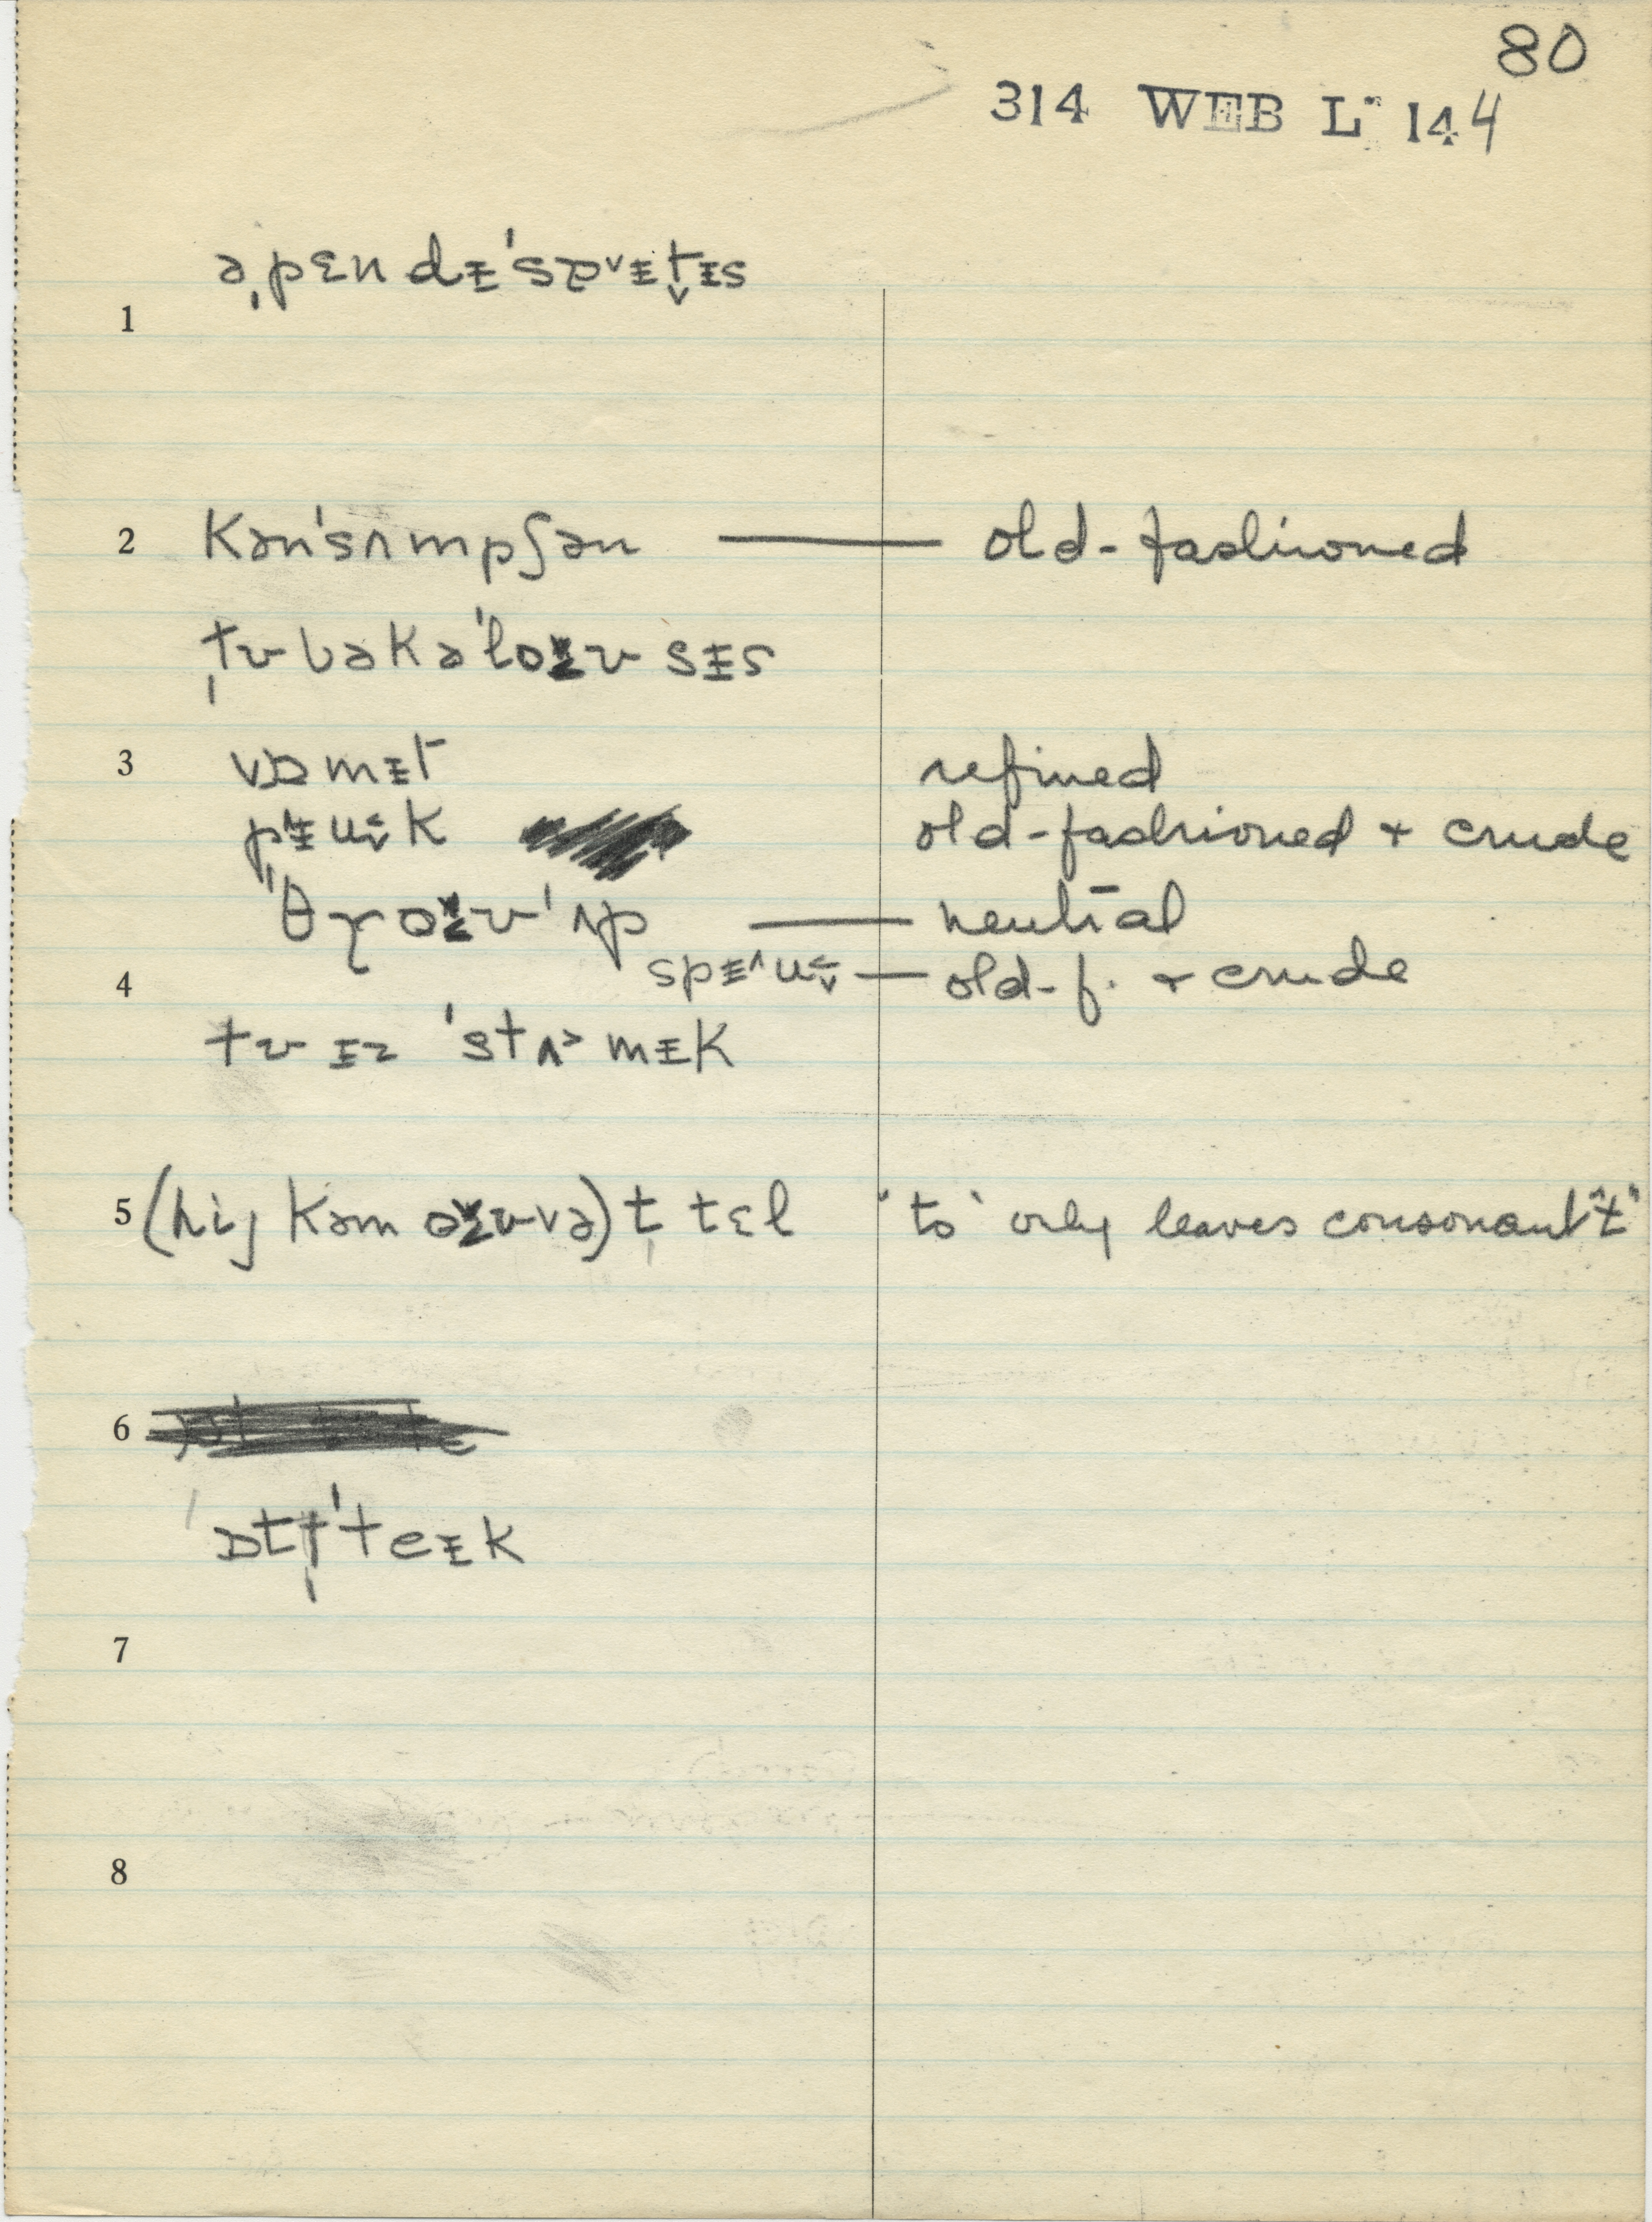 80
314 WEB L 144
1 ə̩pɛndᵻ'sɐᵛᵻt̬ᵻs
2 kən'sʌmpʃən — old-fashioned
ˌtʊbəkə'loʊsᵻs
3 vɒmᵻt refined
pᵻuk old-fashioned + crude
ˈθɣoʊ'ʌp — neutral
spᵻ^u — old-f. + crude
4
tʊ ᵻz 'stʌ˃mᵻk
5 (hij kəm oʊvə) t tɛl 'to' only leaves consonant "t"
6
ɒtt'teᵻk
7
8